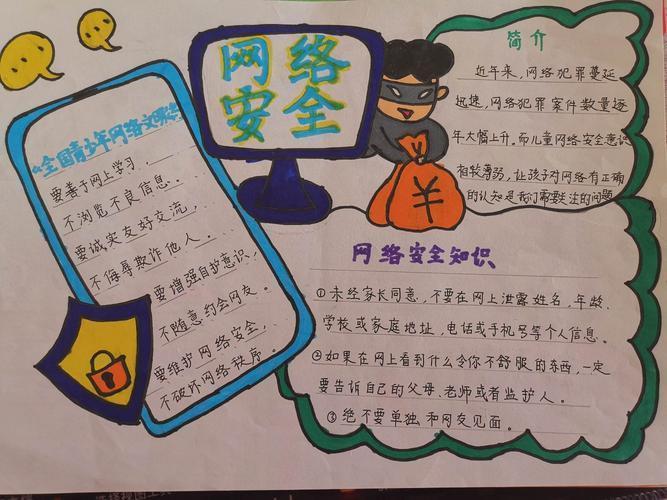 网络
安全
简介
近年来，网络犯罪蔓延
迅速，网络犯罪案件数量逐
年大幅上升。而儿童网络安全意识
相较薄弱，让孩子对网络有正确
的认知是我们需要关注的问题
《全国青少年网络文明公约》
要善于网上学习，
不浏览不良信息。
要诚实友好交流，
不侮辱欺诈他人。
要增强自护意识，
不随意约会网友。
要维护网络安全，
不破坏网络秩序。
¥
网络安全知识
①未经家长同意，不要在网上泄露姓名，年龄、
学校或家庭地址，电话或手机号等个人信息。
②如果在网上看到什么令你不舒服的东西，一定
要告诉自己的父母、老师或者监护人。
③绝不要单独和网友见面。